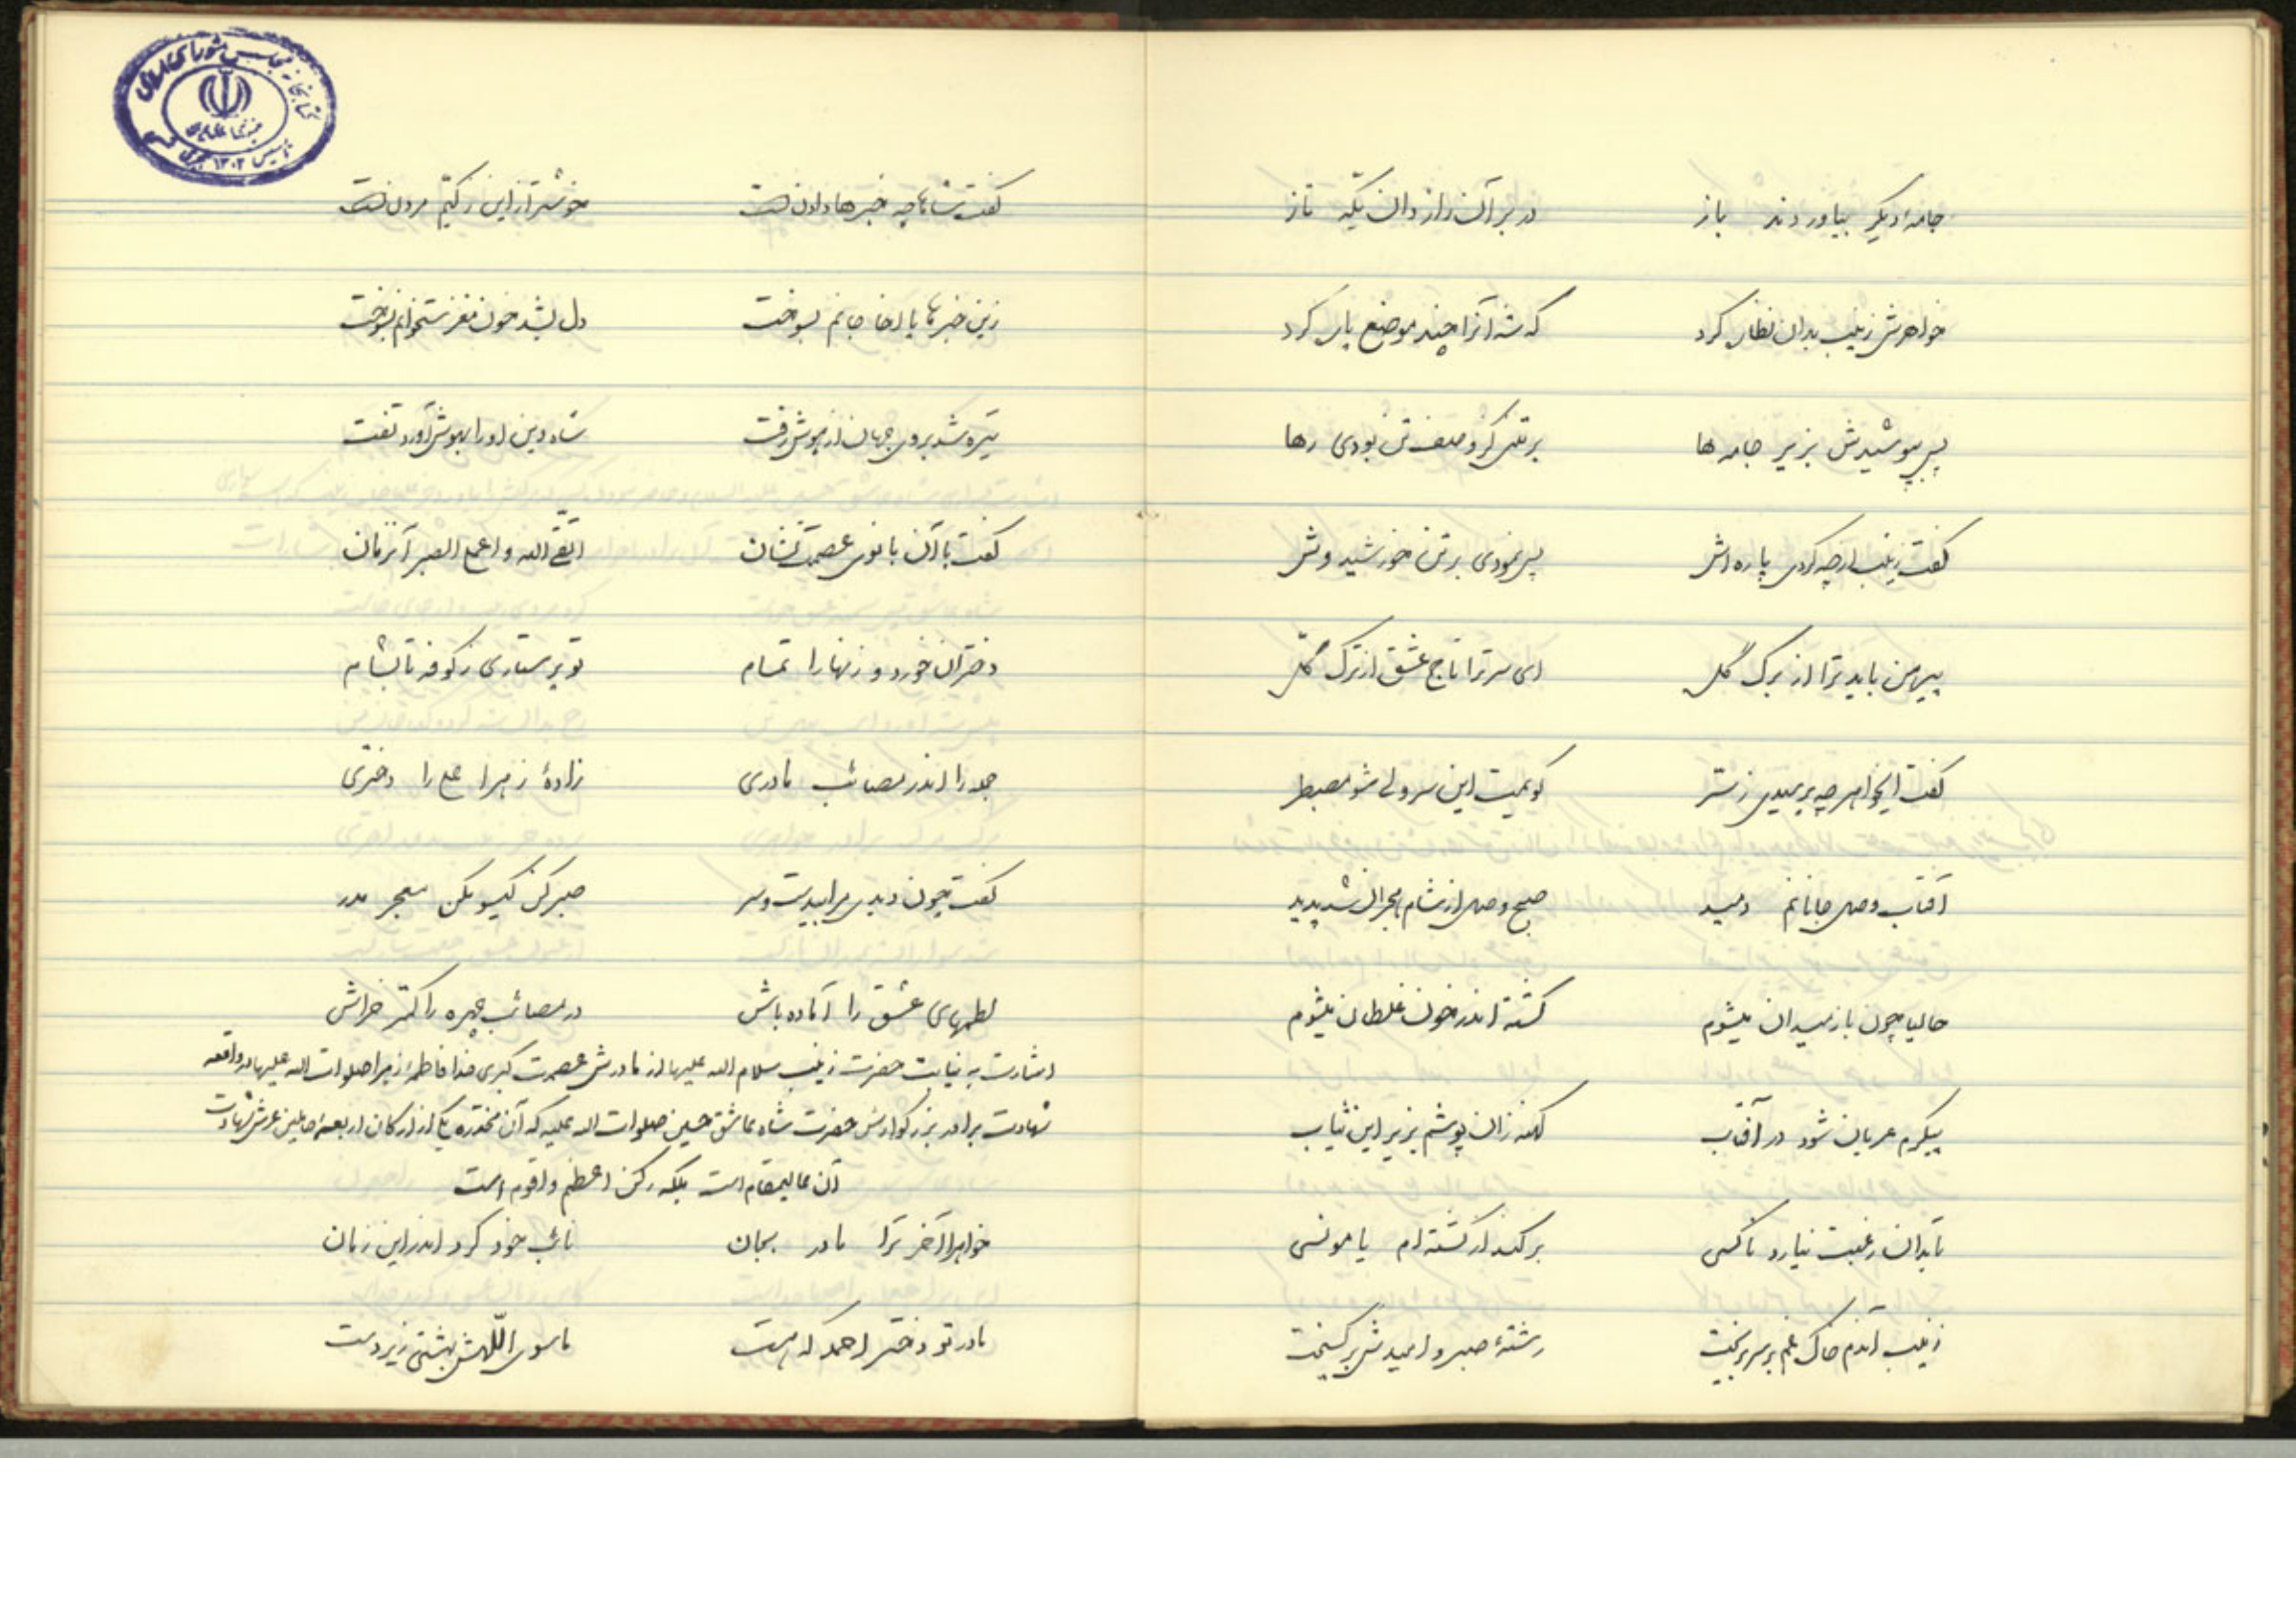 جامهٔ دیگر بیاوردند باز در بر آن رازدان یکه تاز
خواهرش زینب بدان نظاره کرد که شه آنرا چند موضع پاره کرد
پس بپوشیدش بزیر جامه ها برتنی کز وصف تن بودی رها
گفت زینب از چه کردی پاره اش پس نمودی بر تن خورشید وش
پیرهن باید ترا از برگ گل ای سر ترا تاج عشق از ترک کل
گفت ایخواهر چه پرسیدی ز ستر گویمت این سر ولی شو مصطبر
آفتاب وصل جانانم دمید صبح وصل از شام هجران شد پدید
حالیا چون باز میدان میشوم کشته اندر خون غلطان میشوم
پیکرم عریان شود در آفتاب کهنه زان پوشم بزیر این ثیاب
تا بدان رغبت نیارد ناکسی بر کند از کشته ام یا مونسی
زینب آندم خاک غم بر سر بریخت رشتهٔ صبر و امیدش بر گسیخت
گفت شاها چه خبرها دادنست خوشتر از این زندگیم مردنست
زین خبرها یا اخا جانم بسوخت دل بشد خون مغز ستخوانم بسوخت
تیره شد بروی جهان از هوش رفت شاه دین او را بهوش آورد تفت
گفت با آن بانوی عصمت نشان اتقی الله و اعلمی الصبر آنزمان
دختران خورد و زنها را تمام تو پرستاری ز کوفه تا بشام
جمله را اندر مصائب مادری زادهٔ زهرا علی را دختری
گفت چون دیدی مرا بیدست و سر صبر کن گیسو مکن معجر مدر
لطمهای عشق را آماده باش در مصائب چهره را کمتر خراش
اشارت به نیابت حضرت زینب سلام الله علیها از مادرش عصمت کبری خدا فاطمه زهرا صلوات الله علیها در واقعه
شهادت برادر بزرگوارش حضرت شاه عاشق حسین صلوات الله علیه که آن مخدره یکی از ارکان اربعه حاملین عرش شهادت
آن عالیمقام است بلکه رکن اعظم و اقوم است
خواهرا آخر ترا مادر بجان نائب خود کرد اندر این زمان
مادر تو دختر احمد که هست ماسوی اللهش بهشتی زیر دست
کتابخانه مجلس شورای اسلامی
تاسیس ۱۳۰۲